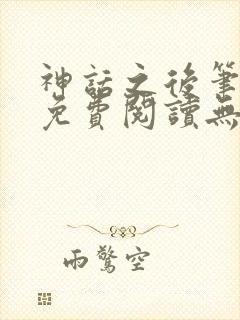 神話之後筆
免費閱讀無
雨驚空